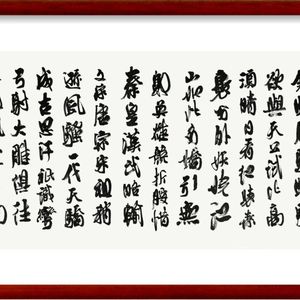 欲與天公試比高
須晴日看紅裝素
裹分外妖嬈江
山如此多嬌引無
數英雄競折腰惜
秦皇漢武略輸
文采唐宗宋祖稍
遜風騷一代天驕
成吉思汗只識彎
弓射大雕俱往